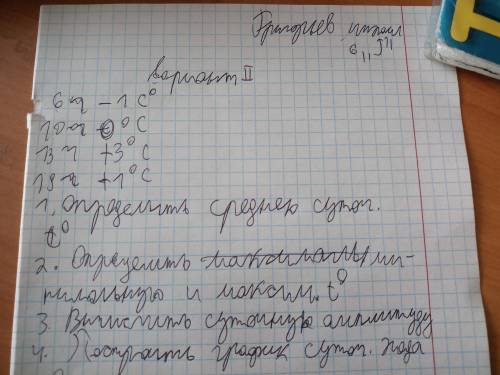 Григорьев
6 "Д"
вариант II
6 ч – 1 С°
10 ч 0° С
13 ч +3° С
19 ч +1° С
1. Определить среднею суточ.
t°
2. Определить ми-
нимальную и максим. t°
3. Вычислить суточную амплитуду
4. Построить график суточ. хода